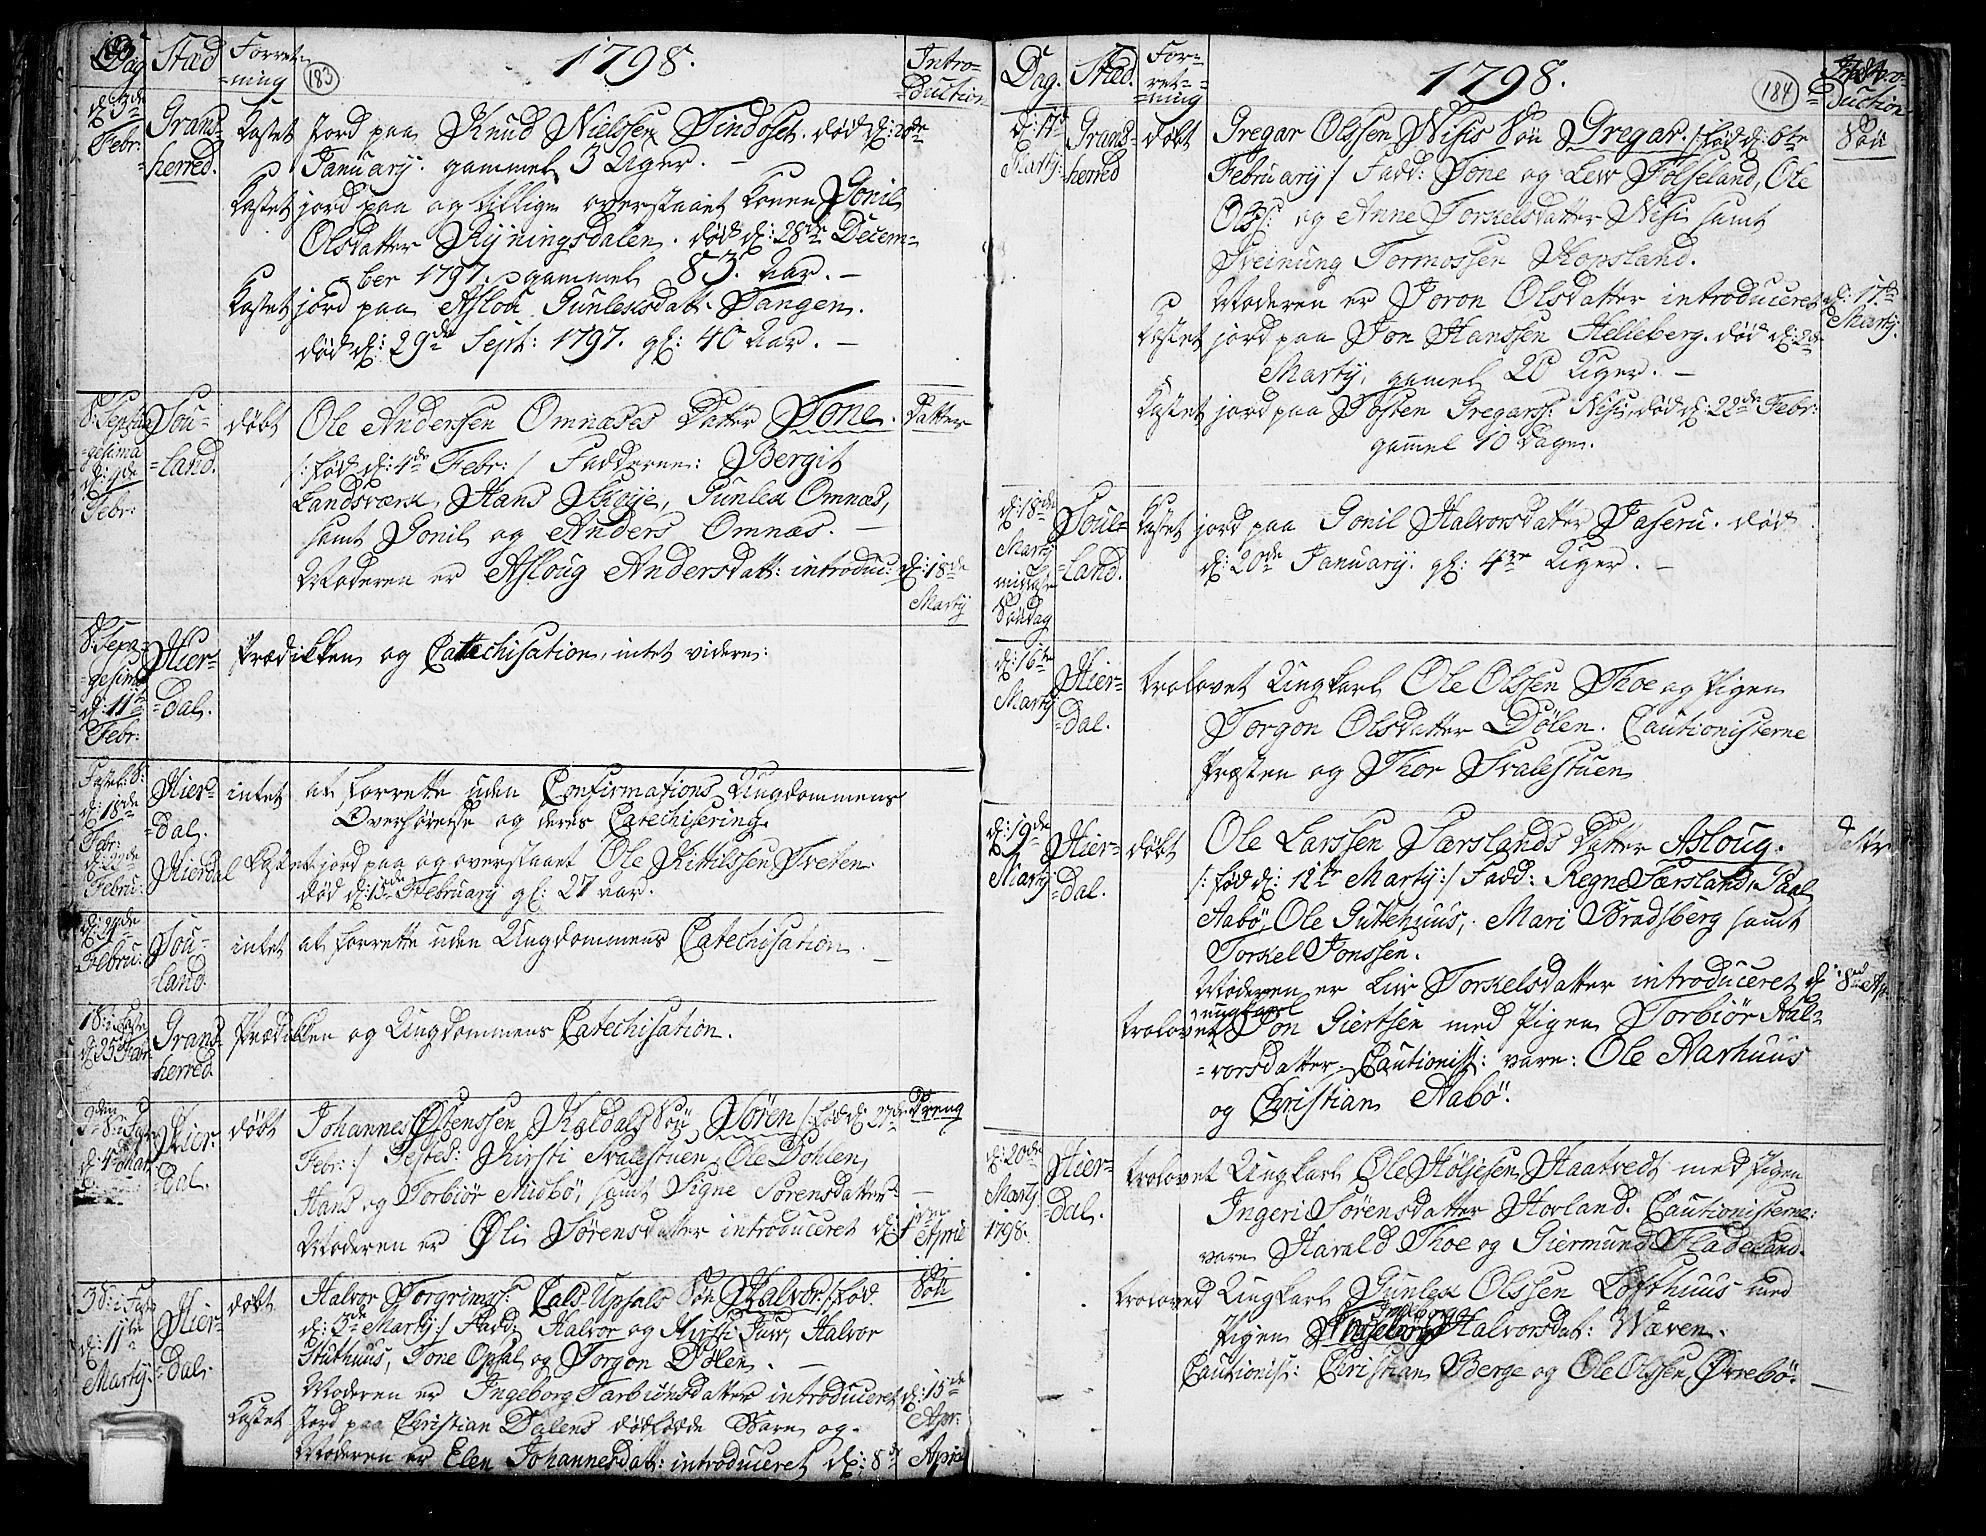 Dag Stad Forret-
=ning 183 1798. Intro-
=duction
d: 3de
Febr: Grans-
=herred. Kastet Jord paa Knud Nielssen Tindoset. død d: 20de
January. gammel 3 Uger. -
Kastet jord paa og tillige overstaaet Konen Gonil
Olsdatter Ryningsdalen. død d: 28de Decem-
=ber 1797. gammel 83. Aar. -
Kastet jord paa Aslou Gunleksdatt: Tangen.
død d: 29de Sept: 1797. gl: 40 Aar. -
Sou-
=land. døbt Ole Anderssen Omnæses Datter Tone. Datter
/: fød d: 4de Febr: / Fadderne: Bergit
Landsværk, Hans Skoije, Gunlek Omnæs,
samt Gonil og Anders Omnæs. -
Moderen er Asloug Andersdatt: introduc: d: 18de
Marty
d: 11te
Febr: Hier-
=dal. Prædikken og Catechisation, intet videre:
d: 18de
Febr: Hier-
=dal. intet at forrette uden Confirmations Ungdommens
Overhørelse og deres Catechisering.
Febru: Hierdal Kastet jord paa og overstaaet Ole Kittilssen Træen.
død d: 15de February gl: 27 aar.
Febru: Sou-
=land. intet at forrette uden Ungdommens Catechisation.
d: 25 Febr: Grans-
herred. Prædikken og Ungdommens Catechisation.
d: 4de Mar: Hier-
=dal. døbt Johannes Østenssen Kaldals Søn Søren /: fød d: 27de Dreng
Febr: / Testes: Kirsti Svalestuen, Ole Dohlen,
Hans og Torbiør Midbø, samt Signe Sørensdatter -
Moderen er Øli Sørensdatter introduceret d: 1ste
April
d: 11te
Marty. Hier-
=dal. døbt Halvor Torgrims: Cals-Upsals Søn Halvor /: fød Søn
d: 3de Marty: / Fadd: Halvor og Kirsti Juv, Halvor
Stuthuus, Tone Opsal og Torgon Dølen. -
Moderen er Ingeborg Tarbiønsdatter introduceret d: 15de
Apr:
Kastet Jord paa Christian Dalens dødfødde Barn og
Moderen er Elen Johannesdatt: introduceret d: 8de April
Dag. Stad. For-
=ret-
=ning 1798. 184 Intro-
=duction
d: 17de
Marty: Grans-
=herred døbt Gregar Olssen Nisis Søn Gregar. /: fød d: 6te Søn
February: / Fadd: Tone og Lew Følseland, Ole
Ols: og Anne Torkelsdatter Nisi samt
Sveinung Tormossen Kopsland.
Moderen er Joron Olsdatter introduceret d: 17de
Marty.
Kastet jord paa Jon Hanssen Helleberg. død d: 2de
Marty, gamel 20 Uger. -
Kastet jord paa Tosten Gregarss: Nisi, død d: 22de Febr:
gamel 10 Dage.
d: 18de
Marty
midfaste
Søndag Soul-
=land. Kastet jord paa Gonil Halvorsdatter Jaseru. død
d: 20de January. gl: 4re Uger. -
d: 16te
Marty Hier-
=dal. trolovet Ungkarl Ole Olssen Thoe og Pigen
Torgon Olsdatter Dølen. Cautionisterne
Præsten og Thor Svalestuen
d: 19de
Marty Hier-
=dal. døbt Ole Larssen Særslands Datter Asloug. Datter
/: fød d: 12te Marty: / Fadd: Regne Særsland, Paal
Aabø, Ole Guttehuus, Mari Bradsberg samt
Torkel Jonssen.
Moderen er Liw Torkelsdatter introduceret d: 8de Ap:
trolovet Ungkarl Jon Giertsen med Pigen Torbiør Hal-
=vorsdatter Cautionist: vare: Ole Aarhuus
og Christian Aabø.
d: 20de
Marty
1798. Hier-
=dal. trolovet Ungkarl Ole Høljesen Haatvedt med Pigen
Ingeri Sørensdatter Horland. Cautionisterne:
vare Harald Thoe og Giermund Fladeland.
troloved Ungkarl Gunlek Olssen Lofthuus med
Pigen Ingeborg Halvorsdat: Wæven.
Cautionist: Christian Berge og Ole Olssen Øvrebø. -